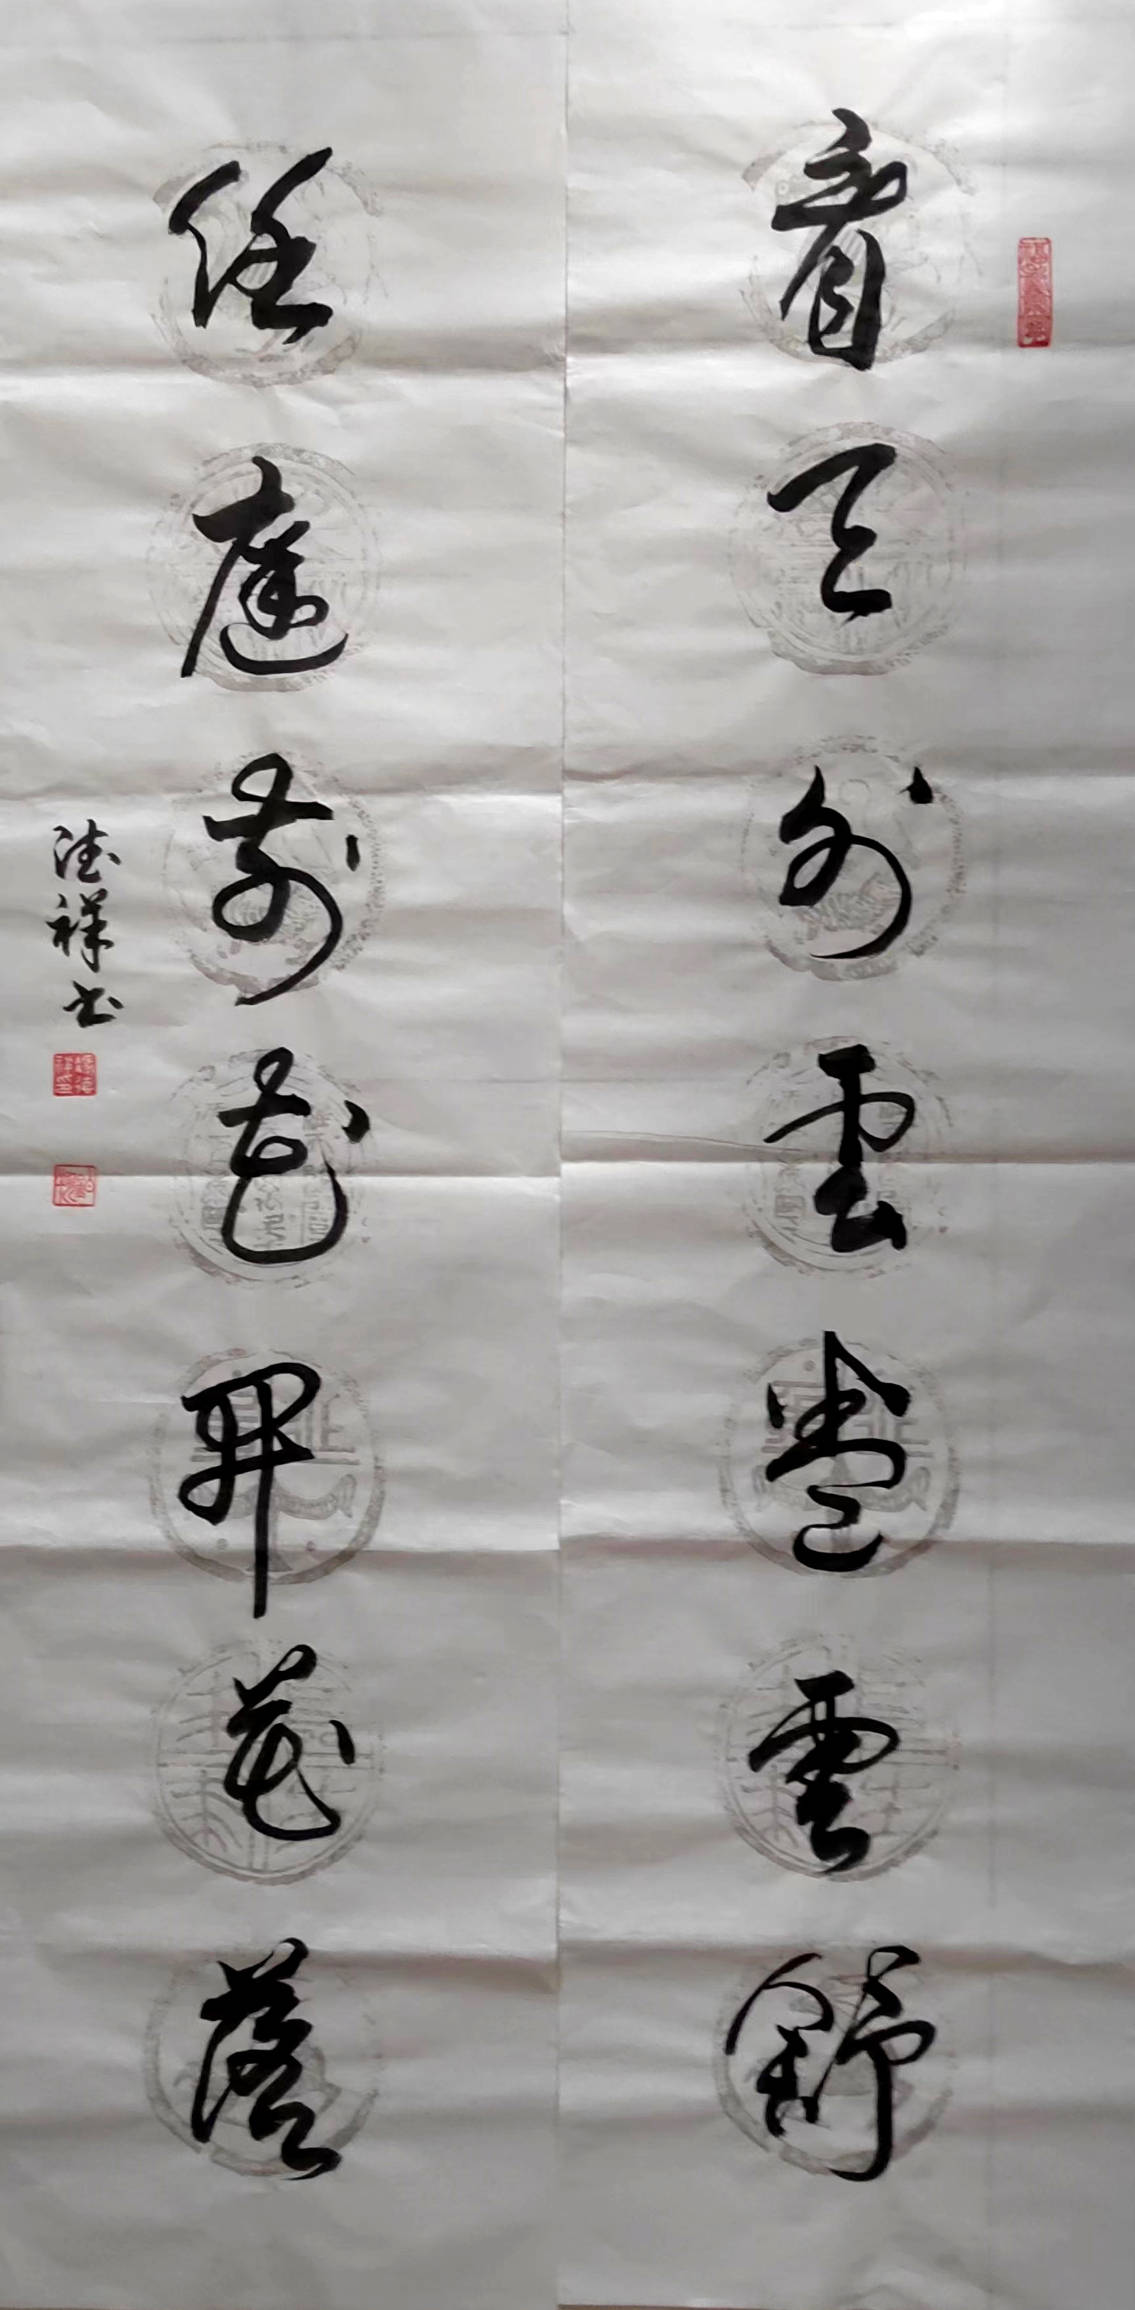 看天外雲卷雲舒
任庭前花開花落
德祥书